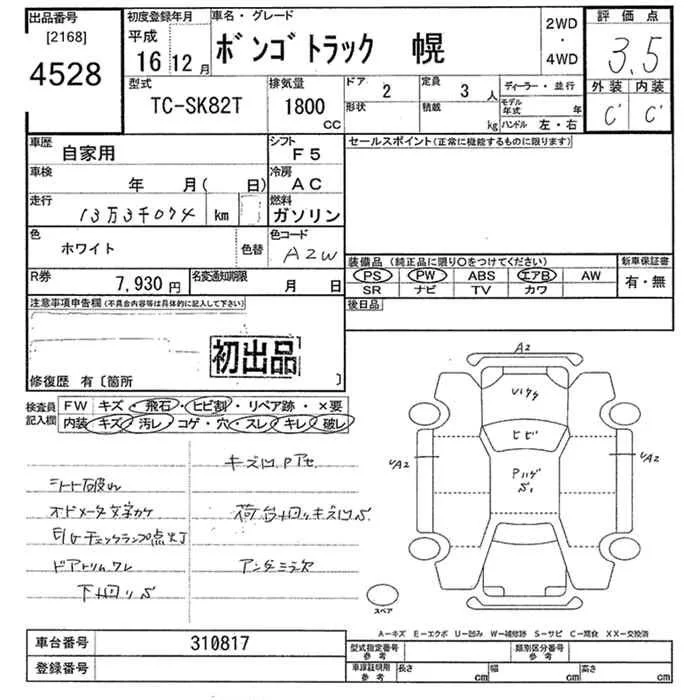 出品番号 初度登録年月 車名・グレード 2WD・4WD 評価点
[2168] 平成
4528 16 12月 ボンゴトラック 幌 3.5
型式 排気量 ドア 2 定員 3人 ディーラー・並行 外装 内装
TC-SK82T 1800cc 形状 積載 kg モデル年式 年 C' C'
ハンドル 左・右
車歴 自家用 シフト F5 セールスポイント(正常に機能するものに限ります)
車検 年 月( 日) 冷房 AC
走行 13万3千074 km 燃料 ガソリン
色 ホワイト 色替 色コード A2W
装備品(純正品に限り○をつけてください) 新車保証書
PS PW ABS エアB AW 有・無
SR ナビ TV カワ
R券 7,930円 名変通知期限 月 日
後日品
注意事項申告欄(不具合内容等は具体的に記入して下さい)
初出品
修復歴 有〔箇所 〕
検査員記入欄 FW キズ・飛石・ヒビ割・リペア跡・×要
内装 キズ 汚レ コゲ・穴・スレ キレ 破レ
キズ凹Pアセ
シート破れ
オドメータ文字カケ 荷台廻りキズ凹S
E/Gチェックランプ点灯
ドアトリムワレ アンダーミラ欠
下廻りS
A2
ヒビ
Pハゲ
S1
UA2
UA2
スペア
A-キズ E-エクボ U-凹み W-補修跡 S-サビ C-腐食 XX-交換済
車台番号 310817 型式指定番号 参考 類別区分番号 参考
登録番号 車庫証明用 参考 長さ cm 幅 cm 高さ cm